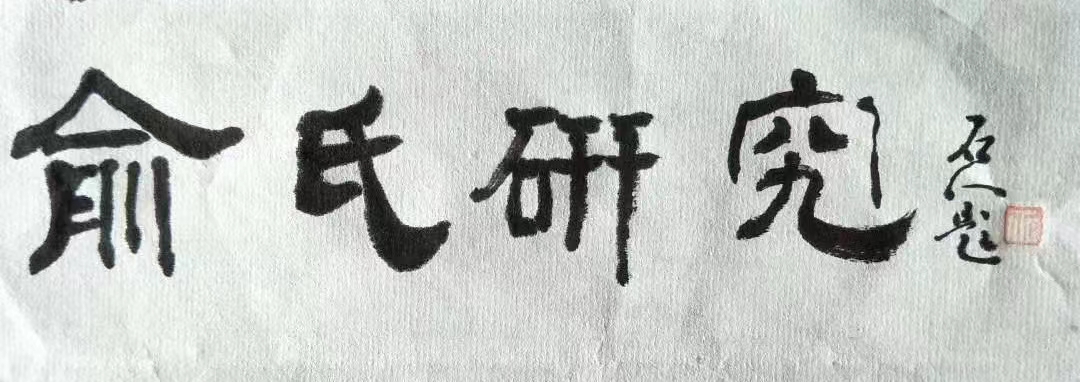 俞氏研究
石人题